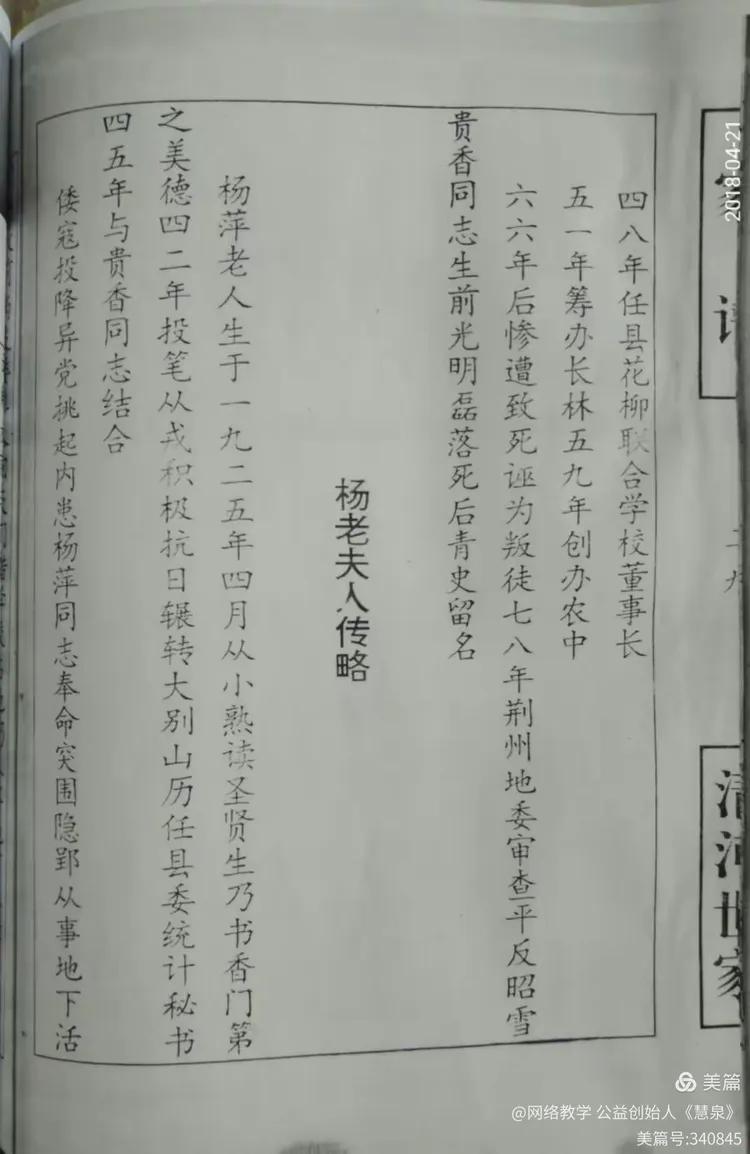 四八年任县花柳联合学校董事长
五一年筹办长林五九年创办农中
六六年后惨遭致死诬为叛徒七八年荆州地委审查平反昭雪
贵香同志生前光明磊落死后青史留名
杨老夫人传略
杨萍老人生于一九二五年四月从小熟读圣贤生乃书香门第
之美德四二年投笔从戎积极抗日辗转大别山历任县委统计秘书
四五年与贵香同志结合
倭寇投降异党挑起内患杨萍同志奉命突围隐郢从事地下活
清河世家
2018-04-21
美篇
@网络教学 公益创始人《慧泉》
美篇号:340845